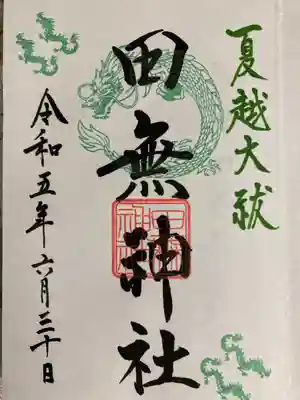 夏越大祓
田無神社
令和五年六月三十日